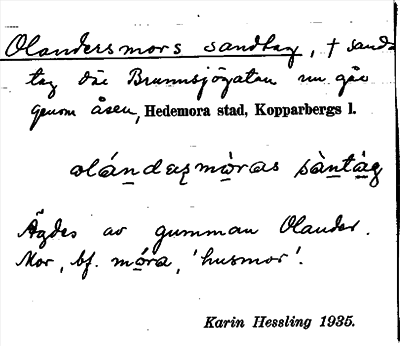 Olandersmors sandtag, † sand-
tag där Brunnsjögatan nu går
genom åsen, Hedemora stad, Kopparbergs l.
olándeʐmòras sàntàg
Ägdes av gumman Olander.
Mor, bf. móra, 'husmor'.
Karin Hessling 1935.